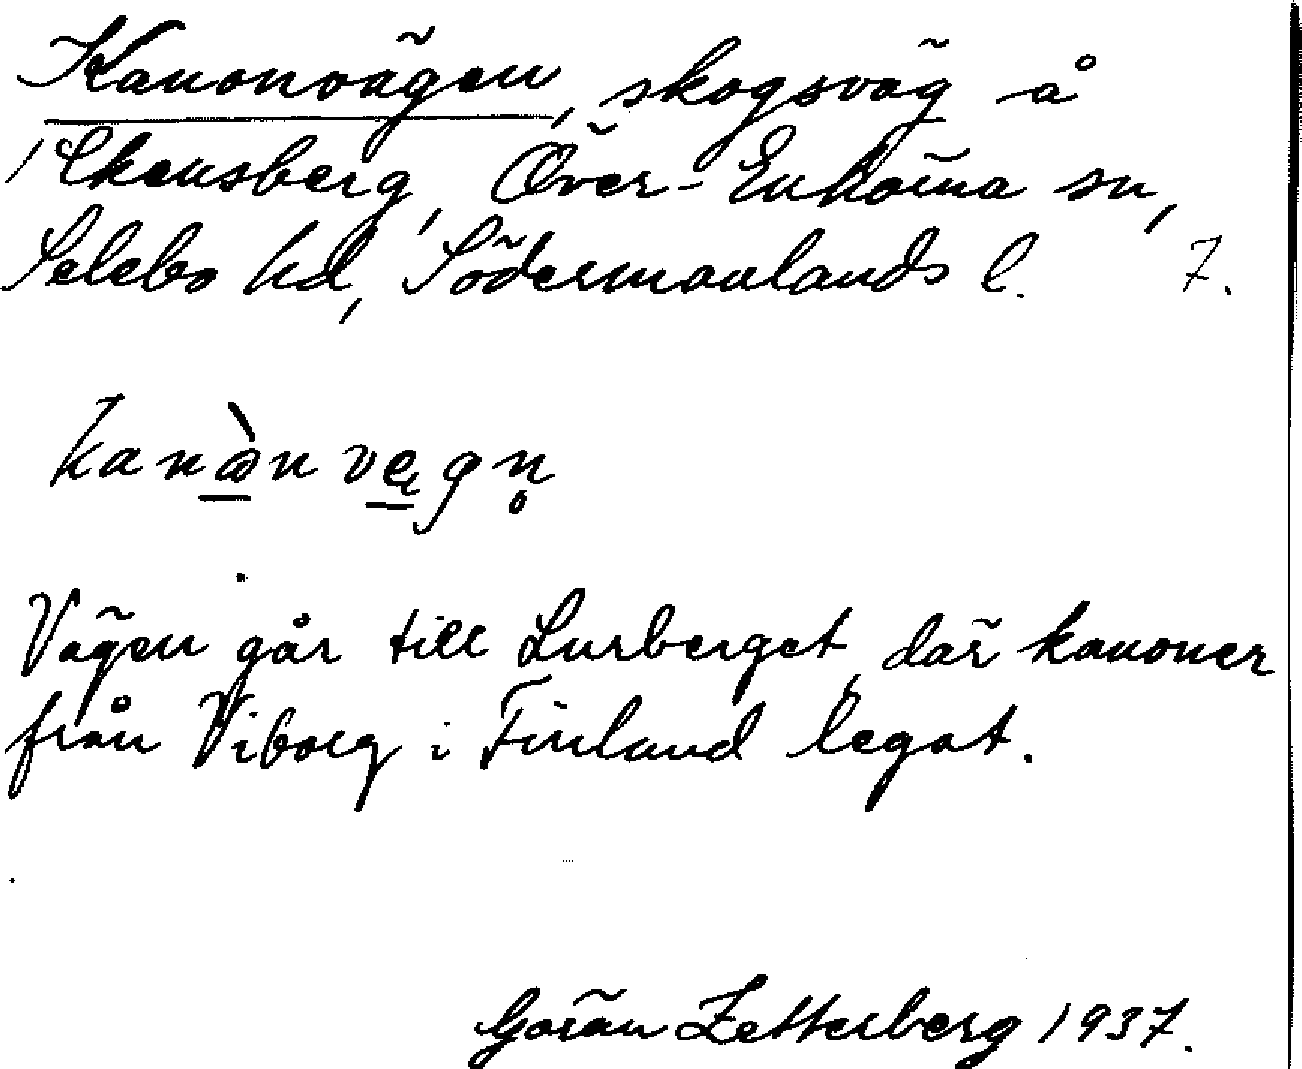 Kanonvägen, skogsväg å
Ekensberg, Över-Enhörna sn,
Selebo hd, Södermanlands l. 7.
kanὼn vęgn̥
Vägen går till Lurberget, där kanoner
från Viborg i Finland legat.
Göran Zetterberg 1937.